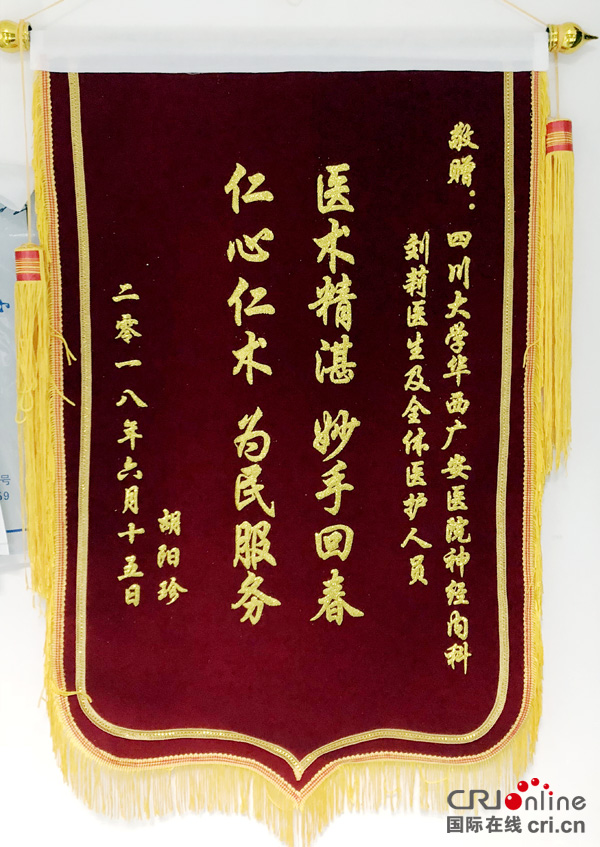 敬赠：四川大学华西广安医院神经内科
刘莉医生及全体医护人员
医术精湛 妙手回春
仁心仁术 为民服务
胡阳珍
二零一八年六月十五日
号
CRIonline
国际在线 cri.cn